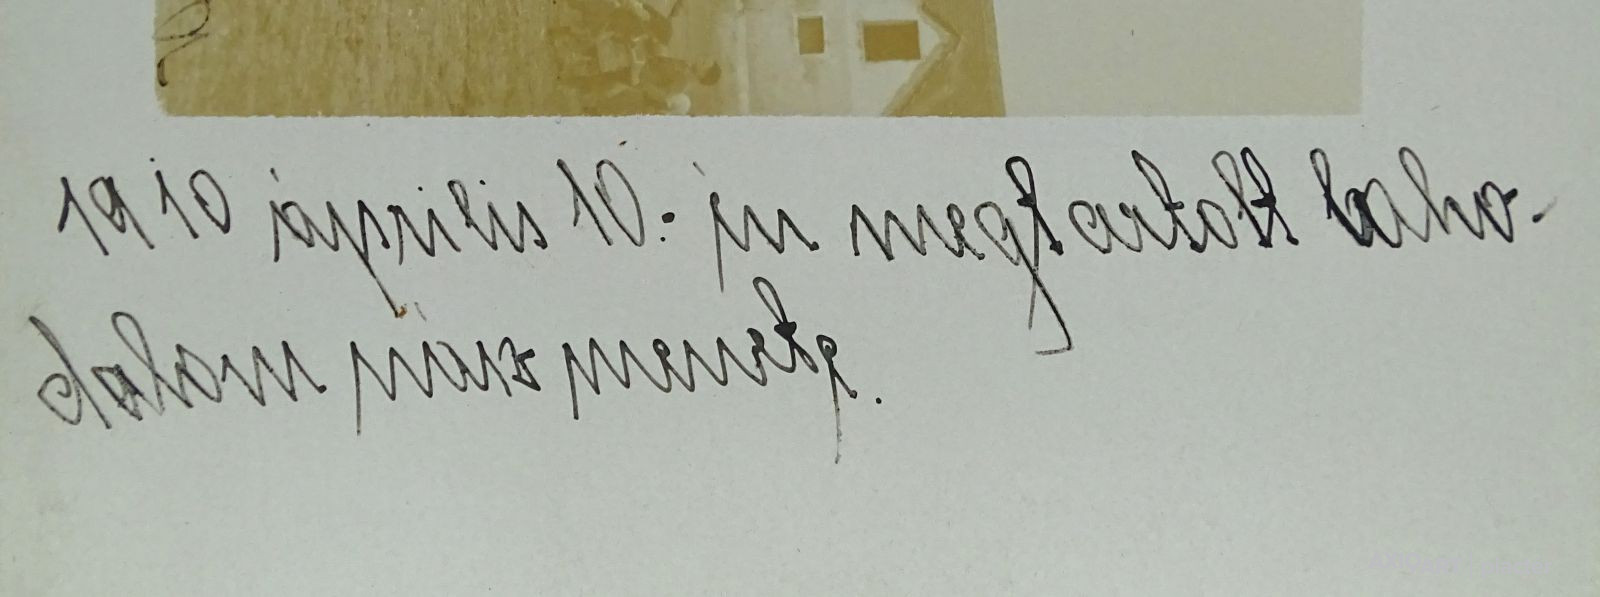 1910 április 10.-én megtartott lako-
dalom nász menete.